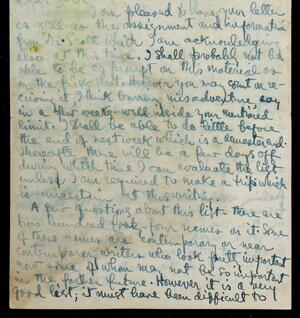 I am pleased to have your letter
as well as the assignment and information
from Dr. Scott which I am acknowledging
also at this time. I shall probably not be
able to be as prompt on this material as
on the first lot. However you may count on re-
ceiving it, I think barring misadventure say
in a few weeks - well inside your mentioned
limit. I shall be able to do little before
the end of next week which is a
thereafter there will be a few days off
during which time I can evaluate the list
unless I am required to make a trip which
is uncertain at this writing.
A few questions about this list - there are
two hundred four names on it. Some
of these names are contemporary or near
contemporary writers who look fairly important
now some of whom may not be so important
in the farther future. However it is a very
good list, it must have been difficult to